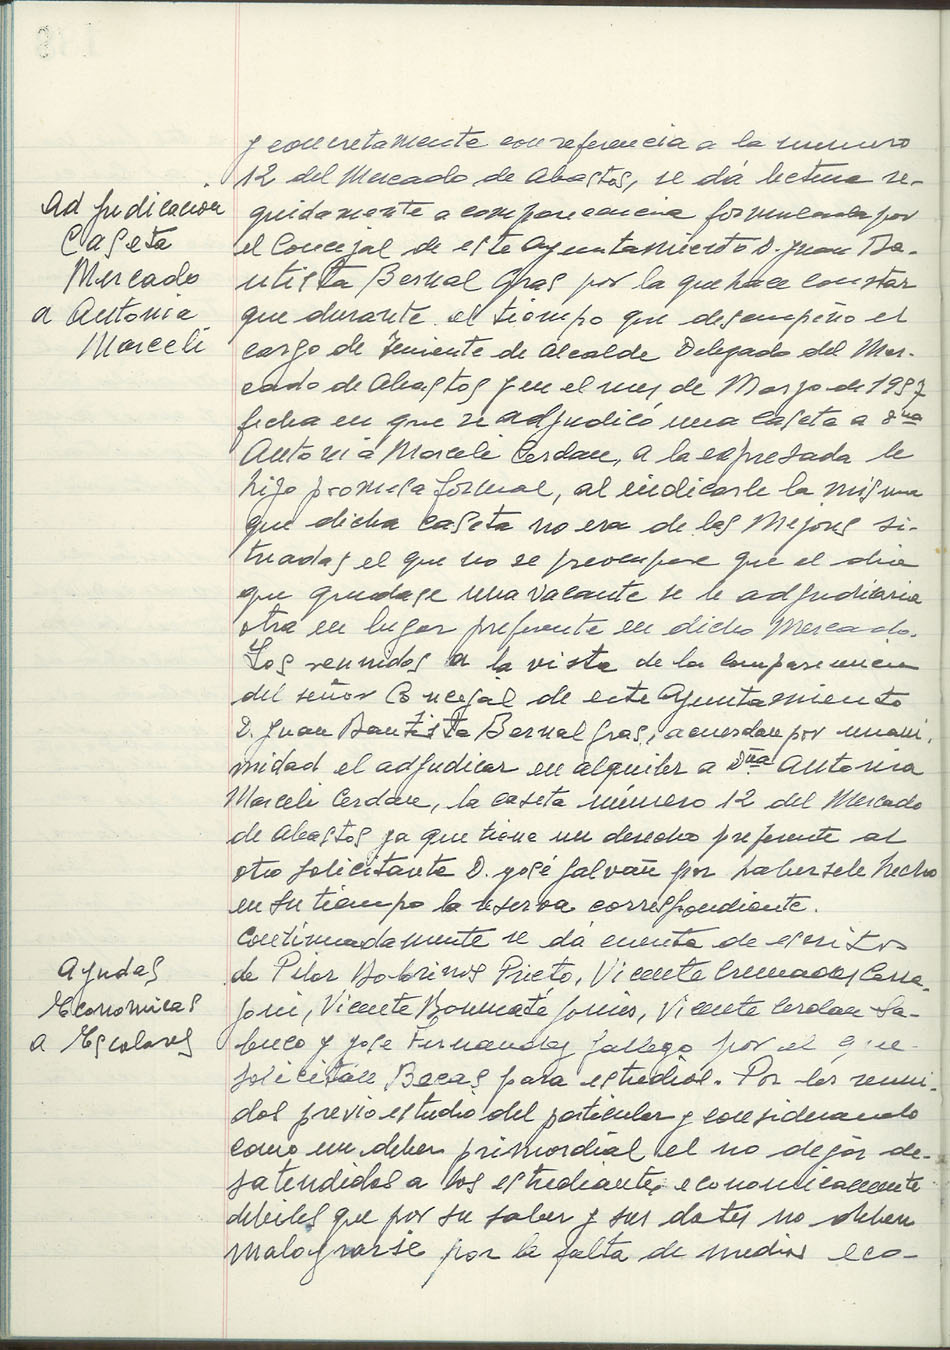 y concretamente con referencia a la numero
12 del Mercado de Abastos, se dá lectura se-
guidamente a comparecencia formulada por
el Concejal de este Ayuntamiento D. Juan Ba-
utista Bernal Gras por la que hace constar
que durante el tiempo que desempeño el
cargo de Teniente de Alcalde Delegado del Mer-
cado de Abastos y en el mes de Marzo de 1957
fecha en que se adjudicó una caseta a Dña
Antonia Marceli Cerdan, a la expresada le
hizo promesa formal, al indicarle la misma
que dicha caseta no era de las mejores si-
tuadas el que no se preocupase que el dia
que quedase una vacante se le adjudicaria
otra en lugar preferente en dicho Mercado.
Los reunidos a la vista de la comparecencia
del señor Concejal de este Ayuntamiento
D. Juan Bautista Bernal Gras, acuerdan por unani-
midad el adjudicar en alquiler a Dña Antonia
Marceli Cerdan, la caseta número 12 del Mercado
de Abastos ya que tiene un derecho preferente al
otro solicitante D. José Galvañ por habersele hecho
en su tiempo la reserva correspondiente.
Continuadamente se dá cuenta de escritos
de Pilar Prieto, Vicente Cremades
Vicente Bonmatí Vicente Cerdan Sa-
buco y Jose Fernandez Gallego por el que
solicitan Becas para estudios. Por los reuni-
dos previo estudio del particular y considerando
como un deber primordial el no dejar de-
satendidos a los estudiantes economicamente
debiles que por su saber y sus dotes no deben
malograrse por la falta de medios eco-
Adjudicacion
Caseta
Mercado
a Antonia
Marceli
Ayudas
Economicas
a Escolares